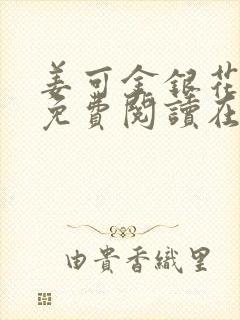 姜可金銀花
免費閱讀在
由貴香織里